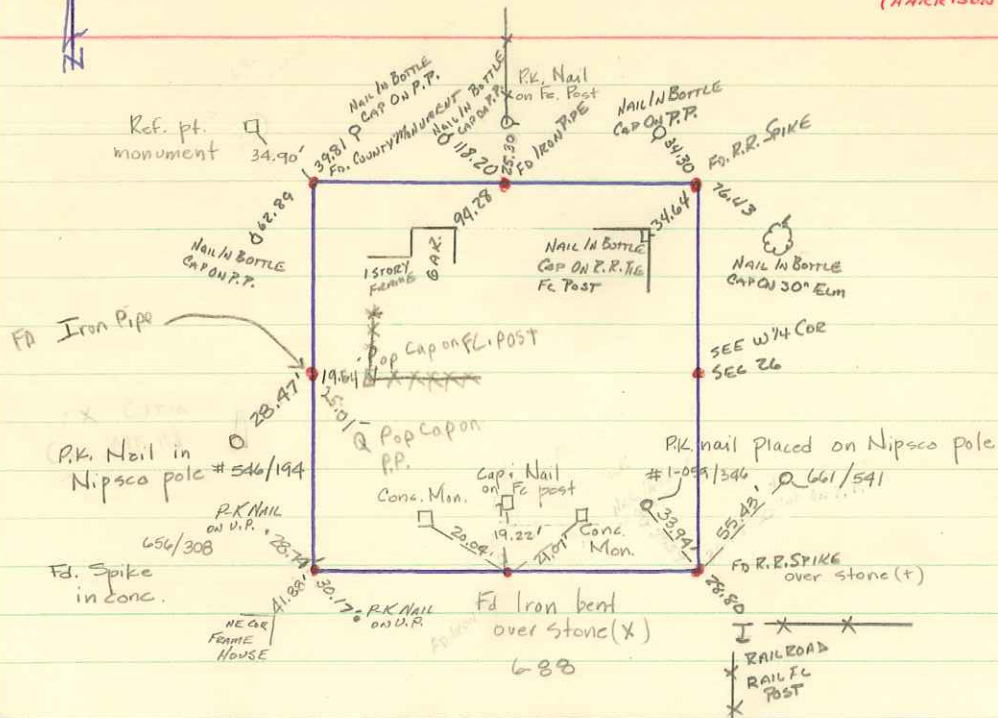 (HARRISON
N
NAIL IN BOTTLE
CAP ON P.P.
39.81
FD. COUNTY MONUMENT
NAIL IN BOTTLE
CAP ON P.P.
118.20
P.K. Nail
on Fc. Post
25.30
FD IRON PIPE
NAIL IN BOTTLE
CAP ON P.P.
34.30
FD. R.R. SPIKE
Ref. pt.
monument
34.90'
62.89
NAIL IN BOTTLE
CAP ON P.P.
94.28
1 STORY
FRAME
GAR.
34.64
NAIL IN BOTTLE
CAP ON R.R. TIE
FC POST
76.43
NAIL IN BOTTLE
CAP ON 30" ELM
FD Iron Pipe
Pop Cap on FC. POST
19.54'
SEE W 1/4 COR
SEC 26
28.47'
25.01'
Pop Cap on
P.P.
P.K. Nail in
Nipsco pole #546/194
P.K. nail placed on Nipsco pole
#1-059/346
661/541
Cap & Nail
on Fc post
Conc. Mon.
Conc.
Mon.
20.04'
19.22'
21.07'
33.94'
55.43'
P.K NAIL
ON U.P.
656/308
28.74'
Fd. Spike
in conc.
41.88'
30.17'
P.K NAIL
ON U.P.
NE COR
FRAME
HOUSE
Fd Iron bent
over stone (X)
6-88
FD R.R. SPIKE
over stone (+)
28.80
RAILROAD
RAIL FC
POST